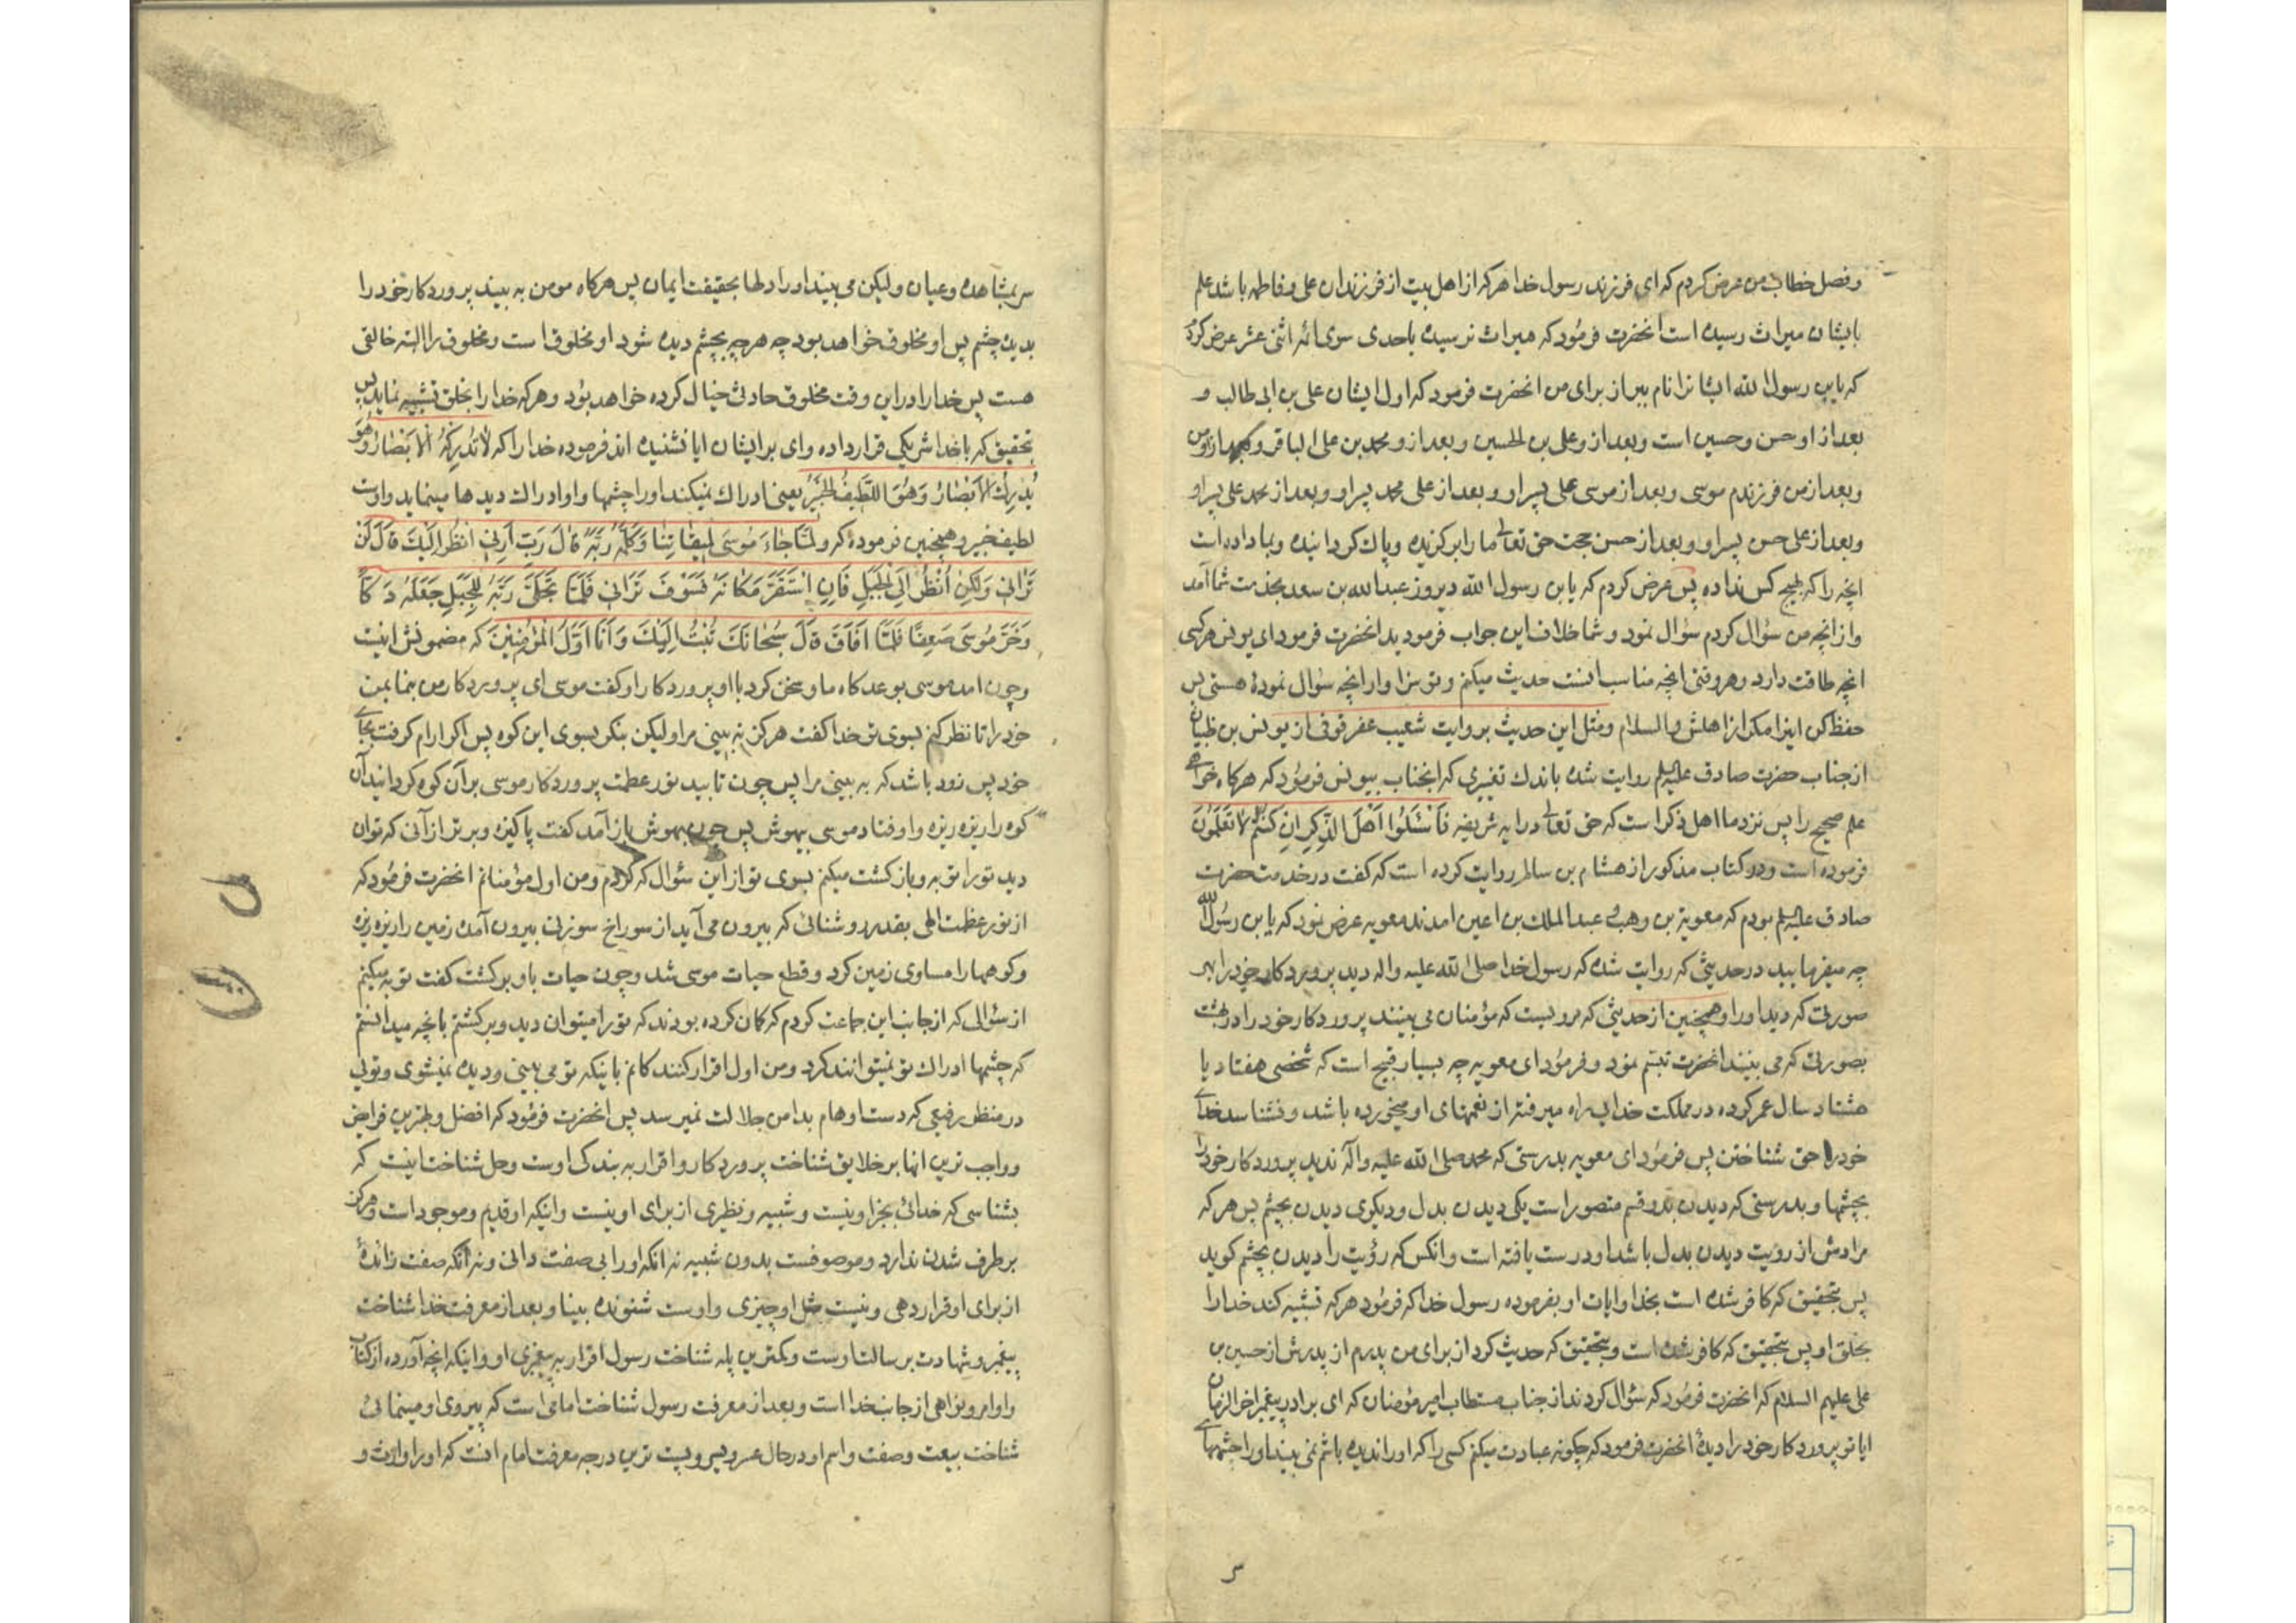 وفصل خطاب من عرض کردم که ای فرزند رسول خدا هرکه از اهل بیت از فرزندان علی و فاطمه باشد علم
بایشان میراث رسیده است انحضرت فرمود که میراث نرسیده باحدی سوی ائمه اثنی عشر عرض کردم
که یابن رسول الله ایشانرا نام ببر از برای من انحضرت فرمود که اول ایشان علی بن ابی طالب و
بعد از او حسن و حسین است وبعد از و علی بن الحسین وبعد از و محمد بن علی الباقر و بعد از او من
وبعد از من فرزندم موسی وبعد از موسی علی پسر او وبعد از علی محمد پسر او وبعد از محمد علی پسر او
وبعد از علی حسن پسر او وبعد از حسن حجت حق تعالی ما را برکزیده وپاک کردانیده وبما داده است
انچه را که بهیچ کس نداده پس عرض کردم که یابن رسول الله دیروز عبدالله بن سعد بخدمت شما آمد
واز انچه من سؤال کردم سؤال نمود وشما خلاف این جواب فرمودید انحضرت فرمود ای یونس هرکسی
انچه طاقت دارد وهر وقتی انچه مناسب انست حدیث میکنم وتو سزاوار انچه سؤال نمودهٔ هستی پس
حفظ کن اینرا مکر از اهلش والسلام ومثل این حدیث بروایت شعیب عقرقوفی از یونس بن ظبیان
از جناب حضرت صادق علیه السلم روایت شده باندک تغییری که انجناب بیونس فرمود که هرکاه خواهی
علم صحیح را پس نزد ما اهل ذکر است که حق تعالی در ایه شریفه فَأسْئَلُوا اَهْلَ الذِّکْرِ اِنْ کُنْتُمْ لاٰ تَعْلَمُونَ
فرموده است ودر کتاب مذکور از هشام بن سالم روایت کرده است که گفت در خدمت حضرت
صادق علیه السلم بودم که معویة بن وهب و عبدالملک بن اعین امدند معویه عرض نمود که یابن رسول الله
چه میفرمایید در حدیثی که روایت شده که رسول خدا صلی الله علیه واله دید پروردکار خود را بهر
صورتی که دید او را وهمچنین از حدیثی که مرویست که مؤمنان می بینند پروردکار خود را در بهشت
بصورتی که می بینند انحضرت تبسّم نمود وفرمود ای معویه چه بسیار قبیح است که شخصی هفتاد یا
هشتاد سال عمر کرده در مملکت خدا براه میرفته از نعمتهای او میخورده باشد ونشناسد خدای
خود را حق شناختن پس فرمود ای معویه بدرستی که محمد صلی الله علیه وآله ندید پروردکار خود را
بچشمها وبدرستی که دیدن بدو قسم متصور است یکی دیدن بدل ودیکری دیدن بچشم پس هرکه
مرادش از رؤیت دیدن بدل باشد او درست یافته است وانکس که رؤیت را دیدن بچشم کوید
پس بتحقیق که کافر شده است بخدا وایات او بفرموده رسول خدا که فرمود هرکه تشبیه کند خدا را
بخلق او پس بتحقیق که کافر شده است وبتحقیق که حدیث کرد از برای من پدرم از پدرش از حسین بن
علی علیهم السلام که انحضرت فرمود که سؤال کردند از جناب مستطاب امیر مؤمنان که ای برادر پیغمبر اخر الزمان
ایا تو پروردکار خود را دیدهٔ انحضرت فرمود که چکونه عبادت میکنم کسی را که او را ندیده باشم نمی بیند او را چشمهای
سر بمشاهده وعیان ولیکن می بیند او را دلها بحقیقت ایمان پس هرکاه مومن به بیند پروردکار خود را
بدین چشم پس او مخلوق خواهد بود چه هرچه بچشم دیده شود او مخلوق است ومخلوق را البته خالقی
هست پس خدا را در این وقت مخلوق حادثی خیال کرده خواهد بود وهرکه خدا را بخلق تشبیه نماید پس
بتحقیق که با خدا شریکی قرار داده وای بر ایشان ایا نشنیده اند فرموده خدا را که لاٰ تُدْرِکُهُ الْاَبْصٰارُ وَهُوَ
یُدْرِكُ الْاَبْصٰارَ وَهُوَ اللَّطیفُ الْخَبیرُ یعنی ادراک نمیکند او را چشمها واو ادراک دیدها مینماید واوست
لطیف خبیر وهمچنین فرموده که وَلَمّٰا جٰاءَ مُوسیَ لِمیقٰاتِنٰا وَکَلَّمَهُ رَبُّهُ قٰالَ رَبِّ اَرِنی اَنْظُرْ اِلَیْكَ قٰالَ لَنْ
تَرٰانی وَلٰکِنِ اُنْظُرْ اِلَی الْجَبَلِ فَاِنِ اسْتَقَرَّ مَکٰانَهُ فَسَوْفَ تَرٰانی فَلَمّٰا تَجَلّیٰ رَبُّهُ لِلْجَبَلِ جَعَلَهُ دَکّاً
وَخَرَّ مُوسیَ صَعِقًا فَلَمّٰا اَفٰاقَ قٰالَ سُبْحٰانَكَ تُبْتُ اِلَیْكَ وَاَنَا اَوَّلُ الْمُؤْمِنینَ که مضمونش اینست
وچون امد موسی بوعدکاه ما وسخن کرد با او پروردکار او کفت موسی ای پروردکار من بنما بمن
خود را تا نظر کنم بسوی تو خدا کفت هرکز نه بینی مرا ولیکن بنکر بسوی این کوه پس اکر ارام کرفت بجای
خود پس زود باشد که به بینی مرا پس چون تابید نور عظمت پروردکار موسی بر آن کوه کردانید آن
کوه را ریزه ریزه واوفتاد موسی بیهوش پس چون بهوش باز آمد کفت پاکیزه وبرتر از آنی که توان
دید تو را توبه وبازکشت میکنم بسوی تو از این سؤال که کردم ومن اول مؤمنانم انحضرت فرمود که
از نور عظمت الهی بقدر روشنائی که بیرون می آید از سوراخ سوزنی بیرون آمده زمین را ریزه ریزه
وکوهها را مساوی زمین کرد وقطع حیات موسی شد وچون حیات باو برکشت کفت توبه میکنم
از سؤالی که از جانب این جماعت کردم که کمان کرده بودند که تو را میتوان دید وبرکشتم بانچه میدانستم
که چشمها ادراک تو نمیتوانند کرد ومن اول اقرار کنندکانم باینکه تو می بینی ودیده نمیشوی وتوئی
در منظر رفیعی که دست اوهام بدامن جلالت نمیرسد پس انحضرت فرمود که افضل وبهترین فرایض
وواجب ترین انها بر خلایق شناخت پروردکار واقرار به بندکی اوست وحد شناخت اینست که
بشناسی که خدائی بجز او نیست وشبیه ونظیری از برای او نیست واینکه او قدیم وموجود است وهرکز
برطرف شدن ندارد وموصوفست بدون شبیه نه انکه او را بی صفت دانی ونه انکه صفت زائدهٔ
از برای او قرار دهی ونیست مثل او چیزی واوست شنونده بینا وبعد از معرفت خدا شناخت
پیغمبر وشهادت برسالت اوست وکمترین پله شناخت رسول اقرار به پیغمبری او واینکه انچه آورده از کتاب
واوامر ونواهی از جانب خدا است وبعد از معرفت رسول شناخت امامی است که پیروی او مینمائی
شناخت ببیعت وصفت واسم او در حال عسر ویسر وپست ترین درجه معرفت امام انست که او را وارث و